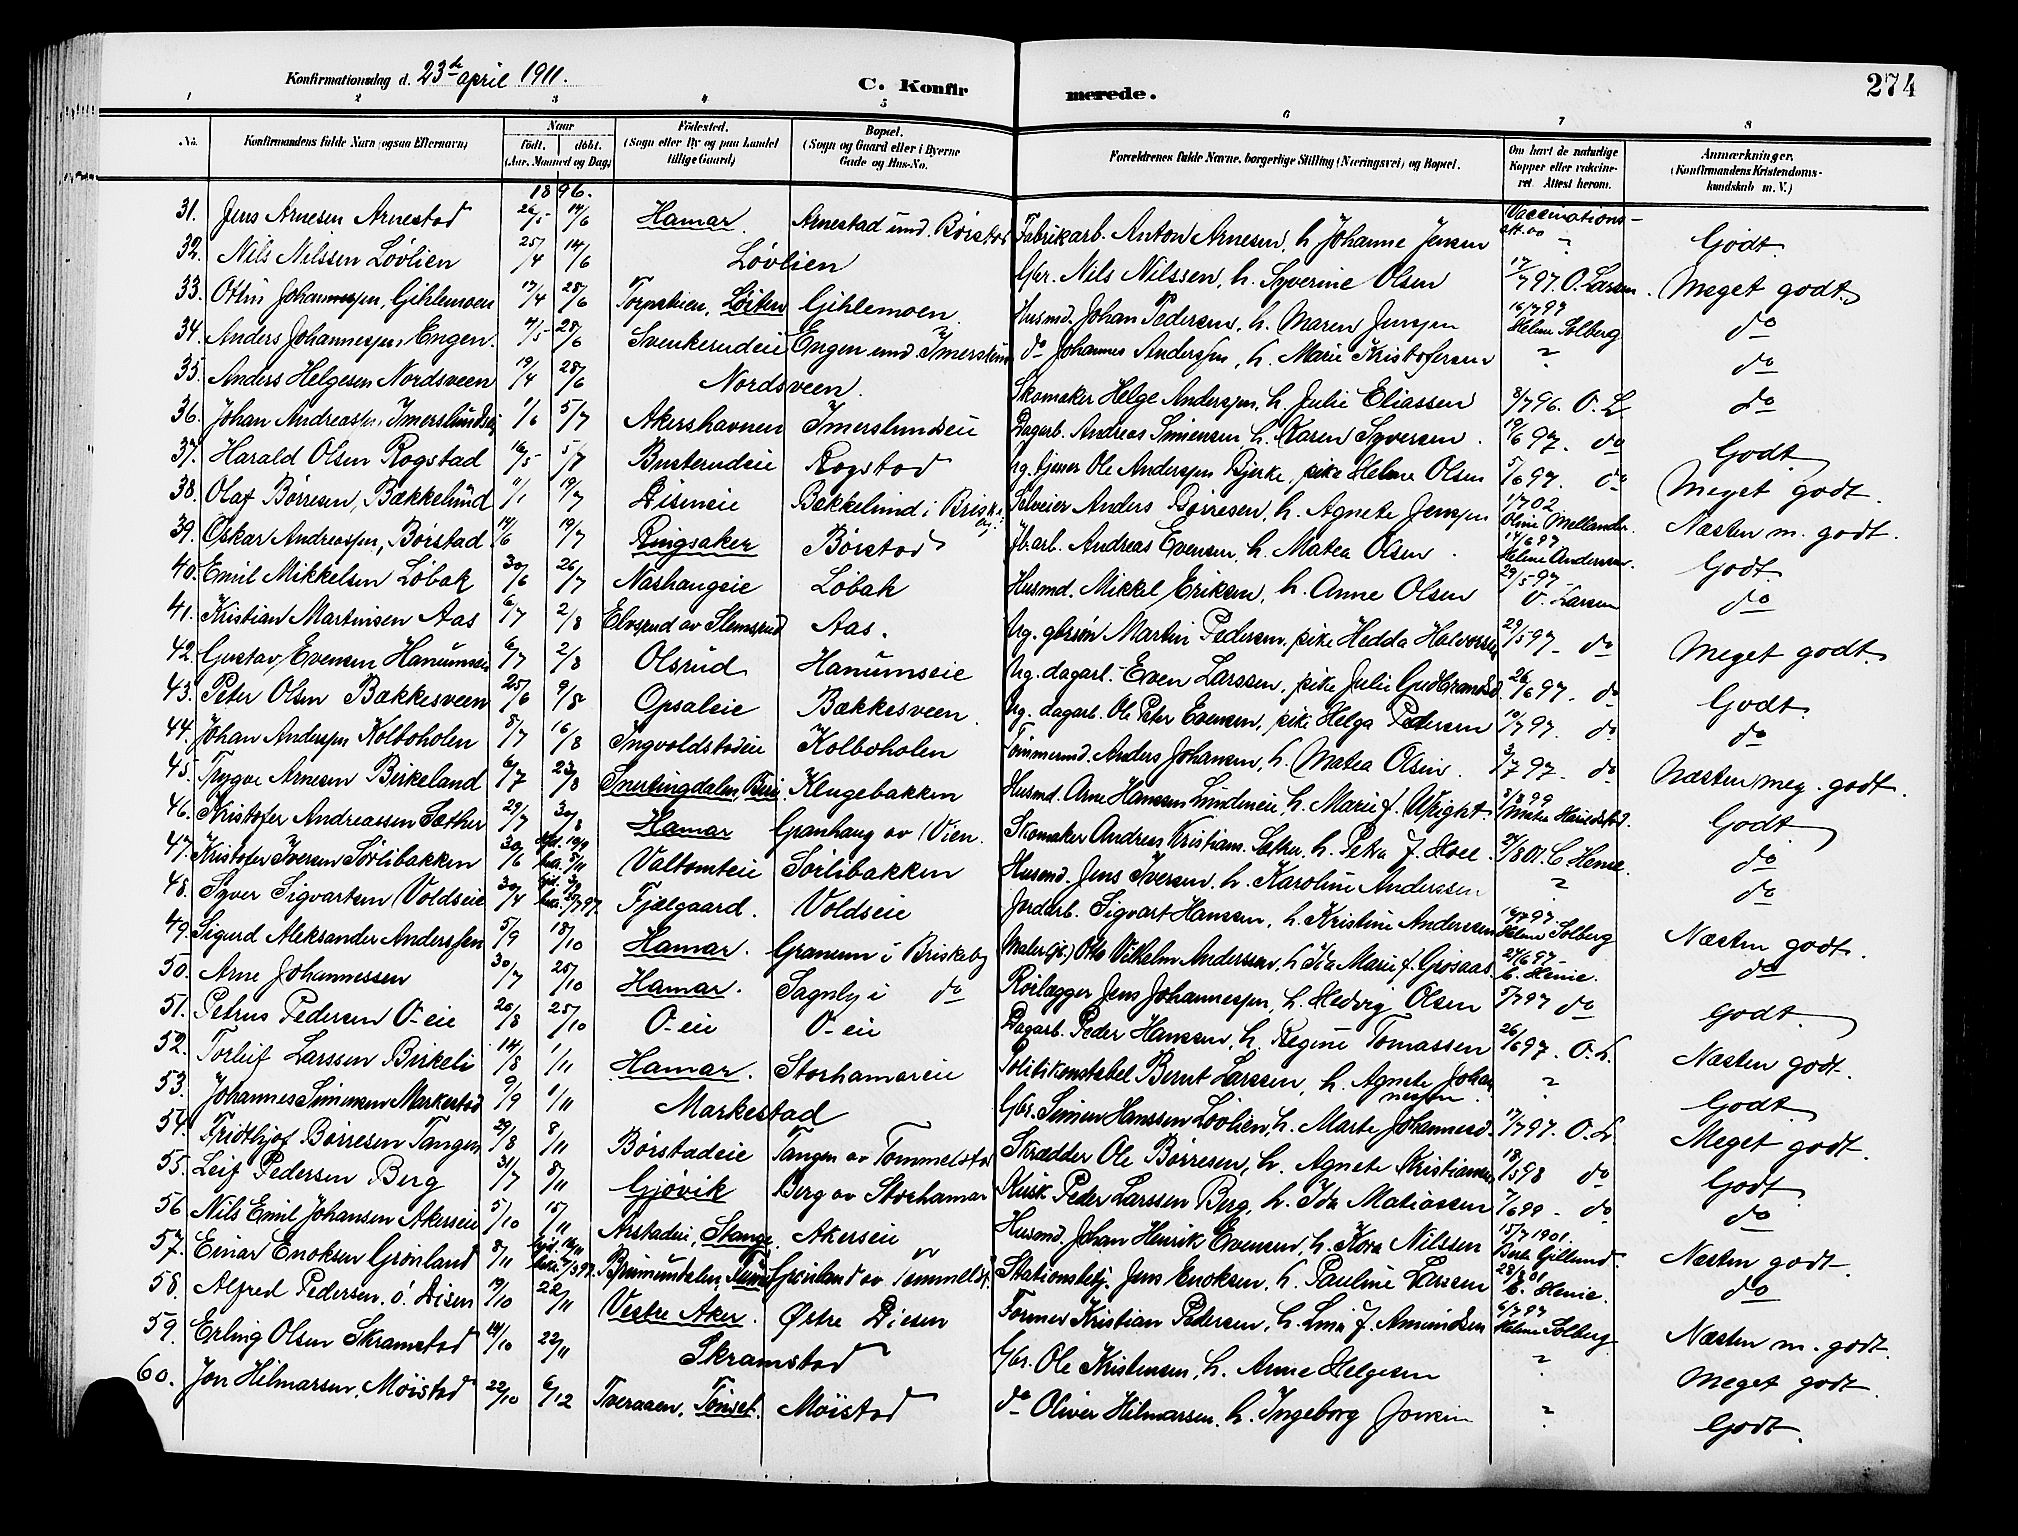 Konfirmationsdag d. 23de april 1911. C. Konfirmerede. 274
1 2 3 4 5 6 7 8
No. Konfirmandens fulde Navn (ogsaa Efternavn) Naar født. døbt. (Aar, Maaned og Dag) Fødested. (Sogn eller By og paa Landet tillige Gaard) Bopæl. (Sogn og Gaard eller i Byerne Gade og Hus-No. Forældrenes fulde Navne, borgerlige Stilling (Næringsvei) og Bopæl. Om havt de naturlige Kopper eller vaccineret. Attest herom. Anmærkninger. (Konfirmandens Kristendomskundskab m. V.)
1896.
31. Jens Arnesen Arnestad 26/5 14/6 Hamar. Arnestad und. Børstad Fabrikarb. Anton Arnesen, h. Johanne Jensen Vaccinations-att. oo " Godt.
32. Nils Nilssen Løvlien 25/4 14/6 Løvlien Gbr. Nils Nilssen, h. Syverine Olsen 17/7 97. O. Larsen. Meget godt.
33. Othin Johannessen, Gihlemoen 17/4 28/6 Torpskien, Løiten Gihlemoen. Husmd. Johan Pedersen, h. Maren Jenssen 16/7 97 Helene Solberg do
34. Anders Johannessen Engen. 4/5 28/6 Svenkerudeie Engen und Imerslund do Johannes Anderssen, h. Marie Kristofersen " do
35. Anders Helgesen Nordsveen 19/4 28/6 Nordsveen. Skomaker Helge Anderssen, h. Julie Eliassen 8/7 96. O. L. do
36. Johan Andreassen Imerslundseie 1/6 5/7 Akershavnen Imerslundseie Dagarb. Andreas Simensen, h. Karen Syversen. 19/6 97. do Godt.
37. Harald Olsen Rogstad 16/5 5/7 Busterudeie Rogstad Ug. tjener Ole Anderssen Bjerke, pike Helene Olsen 5/6 97. do Meget godt.
38. Olaf Børresen, Bækkelund 11/1 19/7 Disineie Bækkelund i Briskeby Selveier Anders Børresen, h. Agnete Jenssen 1/7 02 Oline Mellander. Næsten m. godt.
39. Oskar Andreassen, Børstad 14/6 19/7 Ringsaker Børstad Jb.arb. Andreas Evensen, h. Matea Olsen. 14/6 97 Helene Andersen. Godt.
40. Emil Mikkelsen Løbak 30/6 26/7 Nashaugeie Løbak Husmd. Mikkel Eriksen, h. Anne Olsen 29/5 97 O. Larsen do
41. Kristian Martinsen Aas 6/7 2/8 Elvsrud av Slemsrud Aas. Ug. gbrsøn Martin Pedersen, pike Hedda Halvorsen 29/5 97 - do Meget godt.
42. Gustav Evensen Hanumseie 6/7 2/8 Olsrud Hanumseie Ug. dagarb. Even Larssen, pike Julie Gudbrandsd. 26/6 97. do Godt.
43. Peter Olsen Bakkesveen 25/6 9/8 Opsaleie Bækkesveen. Ug. dagarb. Ole Peter Evensen, pike Helga Pedersen 10/7 97. do do
44. Johan Anderssen Kolboholen 8/7 16/8 Ingvoldstadeie Kolboholen Tømmermd. Anders Johansen, h. Matea Olsen. 3/7 97. do Næsten meg. godt.
45. Trygve Arnesen Birkeland 6/7 23/8 Snertingdalen, Biri. Klugebakken Husmd. Arne Hanssen Lundeneie, h. Marie f. Wright. 3/8 99 Godt
46. Kristofer Andreassen Sæther 29/7 30/8 Hamar Granhaug av Vien. Skomaker Andreas Kristians. Sæther, h. Petra f. Hoel. 21/8 01. C. Henie. do
47. Kristofer Iversen Sørlibakken 30/6 hjd. 19/9 kirk. 8/11 Valtomteie Sørlibakken Husmd. Jens Iversen, h. Karoline Anderssen " do
48. Syver Sigvartsen Voldseie 30/4 Fjælgaard. Voldseie Jordarb. Sigvart Hanssen, h. Kristine Anderssen 16/7 97 Helene Solberg Næsten godt.
49. Sigurd Aleksander Anderssen 5/9 18/10 Hamar. Granum i Briskeby Maler Otto Vilhelm Anderssen, h. Ida Marie f. Grosaas 24/6 97 C. Henie. do
50. Arne Johannessen 30/7 25/10 Hamar. Sagnby i do Rørlægger Jens Johannessen, h. Hedvig Olsen 5/7 97 do Godt.
51. Petrus Pedersen O-eie 20/8 25/10 O-eie O-eie Dagarb. Peder Hanssen, h. Regine Tomassen 26/6 97. O. L. Næsten godt.
52. Torleif Larssen Birkeli 14/8 1/11 Hamar. Storhamareie Politikonstabel Bernt Larssen, h. Agnete Johannessen. " Godt
53. Johannes Simensen Markestad 9/9 1/11 Markestad Gbr. Simen Hanssen Løvlien, h. Marte Johannesd. 17/7 97. O. L. Meget godt.
54. Fridthjof Børresen Tangen 29/8 8/11 Børstadeie Tangen av Tommelstad Skrædder Ole Børresen, h. Agnete Kristiansen 18/5 98 do Godt
55. Leif Pedersen Berg 31/7 8/11 Gjøvik Berg av Storhamar Kusk Peder Larssen Berg, h. Ida Matiassen 7/6 99 - do do
56. Nils Emil Johansen Akerseie 5/10 15/11 Arstadeie, Stange. Akerseie Husmd. Johan Henrik Evensen, h. Kora Nilssen 15/7 1901. Berte Gillund. Næsten godt.
57. Einar Enoksen Grønland 8/11 Brumundalen, Grønland av Tommelst. Stationsbetj. Jens Enoksen, h. Pauline Larssen 28/8 01 C. Henie. do
58. Alfred Pedersen, ø. Disen 19/10 22/11 Vestre Aker. Østre Disen Former Kristian Pedersen, h. Lina f. Amundsen 6/7 97 Helene Solberg Næsten m. godt.
59. Erling Olsen Skramstad 14/10 22/11 Skramstad Gbr. Ole Kristensen, h. Anne Helgesen " Meget godt.
60. Jon Hilmarsen, Møistad 22/10 6/12 Tveraaen, Tønset. Møistad do Oliver Hilmarsen, h. Ingeborg " Godt.